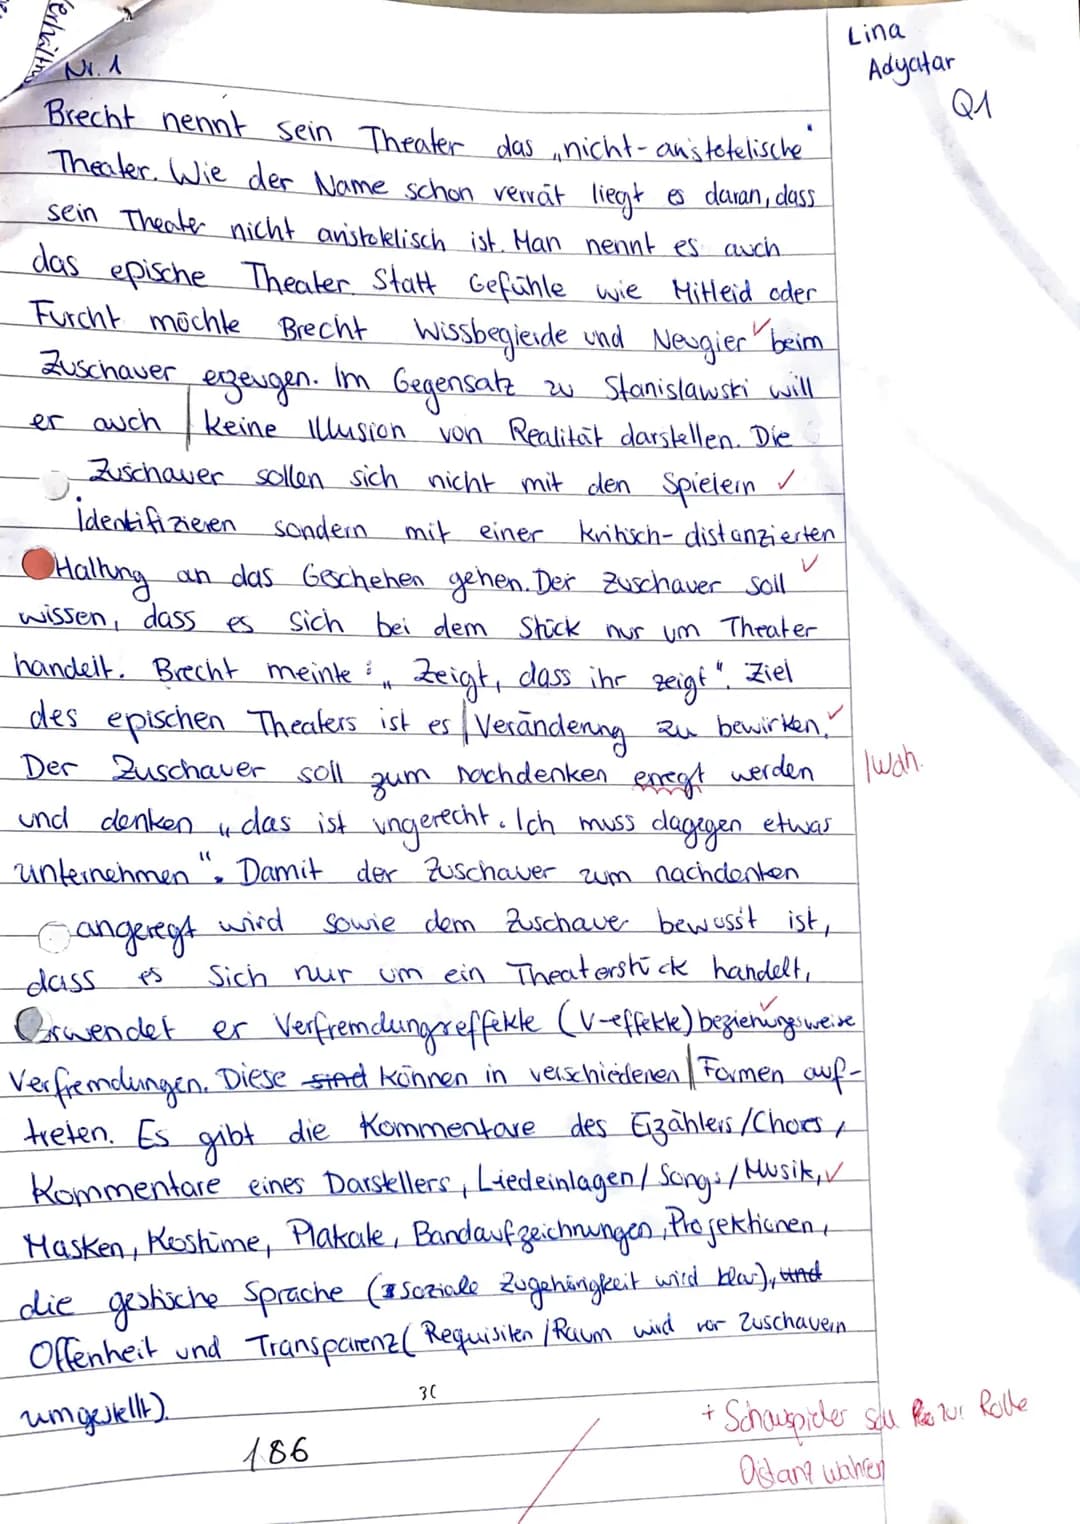 Lina
Adyatar
Q1
Nr. 1
Brecht nennt sein Theater das „nicht-aristotelische"
Theater. Wie der Name schon verrät liegt es daran, dass
sein Theater nicht aristotelisch ist. Man nennt es auch
das epische Theater. Statt Gefühle wie Mitleid oder
Furcht möchte Brecht Wissbegierde und Neugier beim
Zuschauer erzeugen. Im Gegensatz zu Stanislawski will
er auch keine Illusion von Realität darstellen. Die
Zuschauer sollen sich nicht mit den Spielern
identifizieren sondern mit einer kritisch-distanzierten
Haltung an das Geschehen gehen. Der Zuschauer soll
wissen, dass es sich bei dem Stück nur um Theater
handelt. Brecht meinte: „Zeigt, dass ihr zeigt". Ziel
des epischen Theaters ist es Veränderung zu bewirken.
Der Zuschauer soll zum nachdenken erregt werden
|Wdh.
und denken „das ist ungerecht. Ich muss dagegen etwas
unternehmen". Damit der Zuschauer zum nachdenken
angeregt wird sowie dem Zuschauer bewusst ist,
dass es sich nur um ein Theaterstück handelt,
verwendet er Verfremdungseffekte (V-effekte) beziehungsweise
Verfremdungen. Diese sind können in verschiedenen Formen auf-
treten. Es gibt die Kommentare des Erzählers/Chors,
Kommentare eines Darstellers, Liedeinlagen/Songs/Musik,
Masken, Kostüme, Plakate, Bandaufzeichnungen, Projektionen,
die gestische Sprache (Soziale Zugehörigkeit wird klar), und
Offenheit und Transparenz (Requisiten/Raum wird vor Zuschauern
umgestellt).
186
+ Schauspieler soll zur Rolle
Distanz wahren